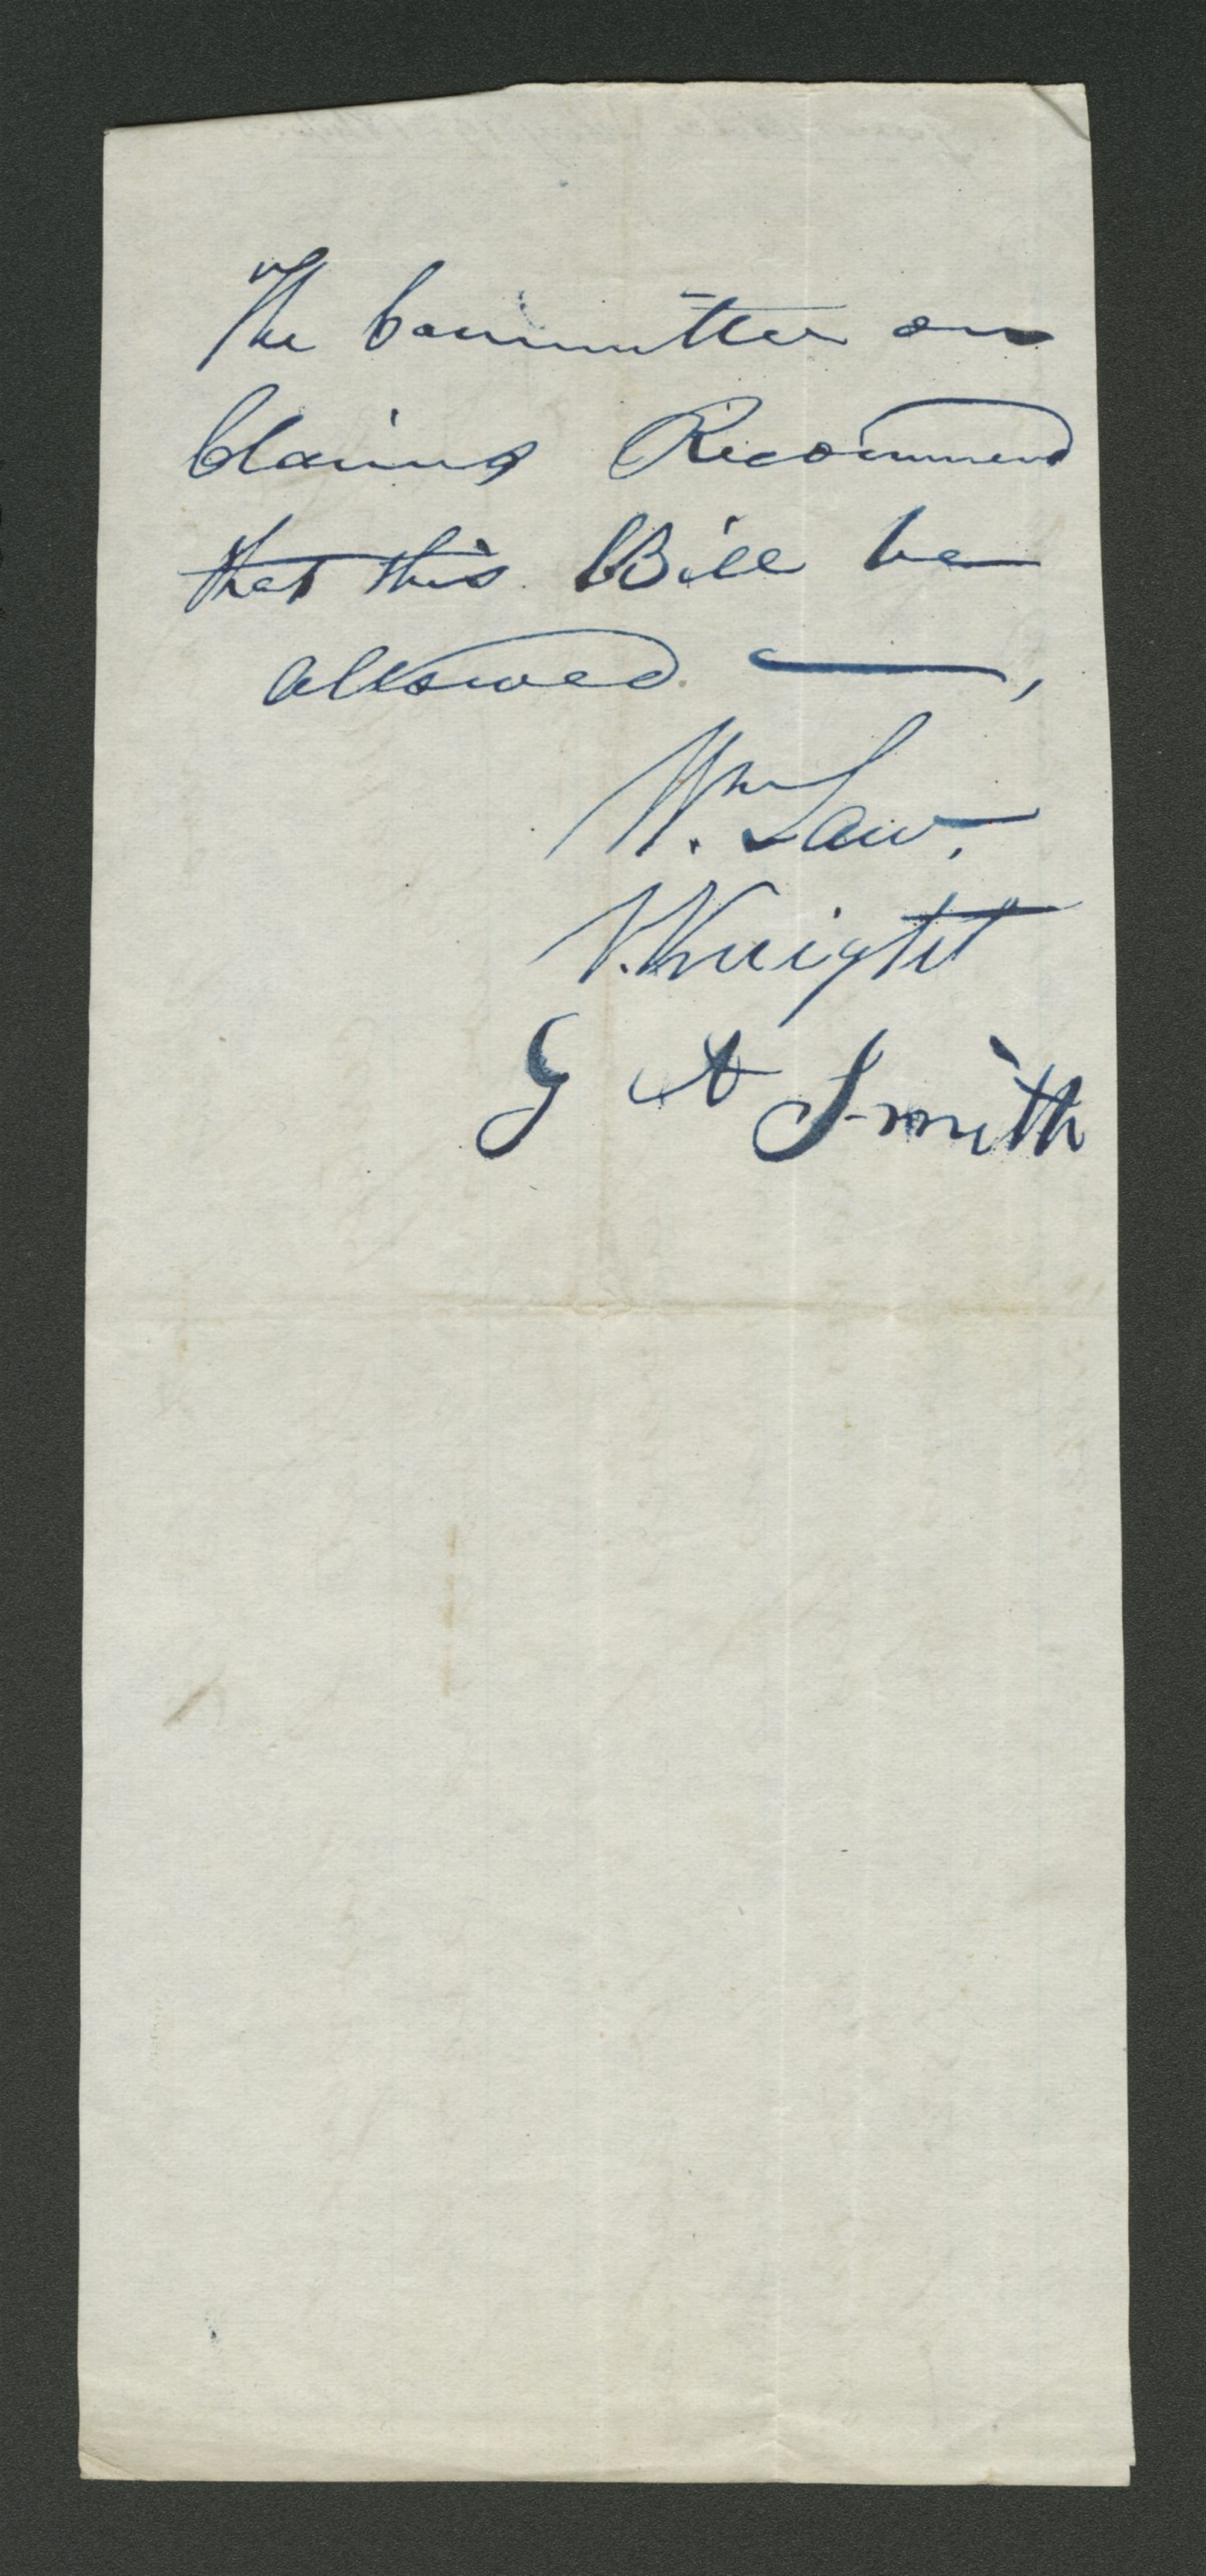 The Committee on
Claims Recommend
that this Bill be
allowed —,
Wm Law,
V. Knight
G A Smith